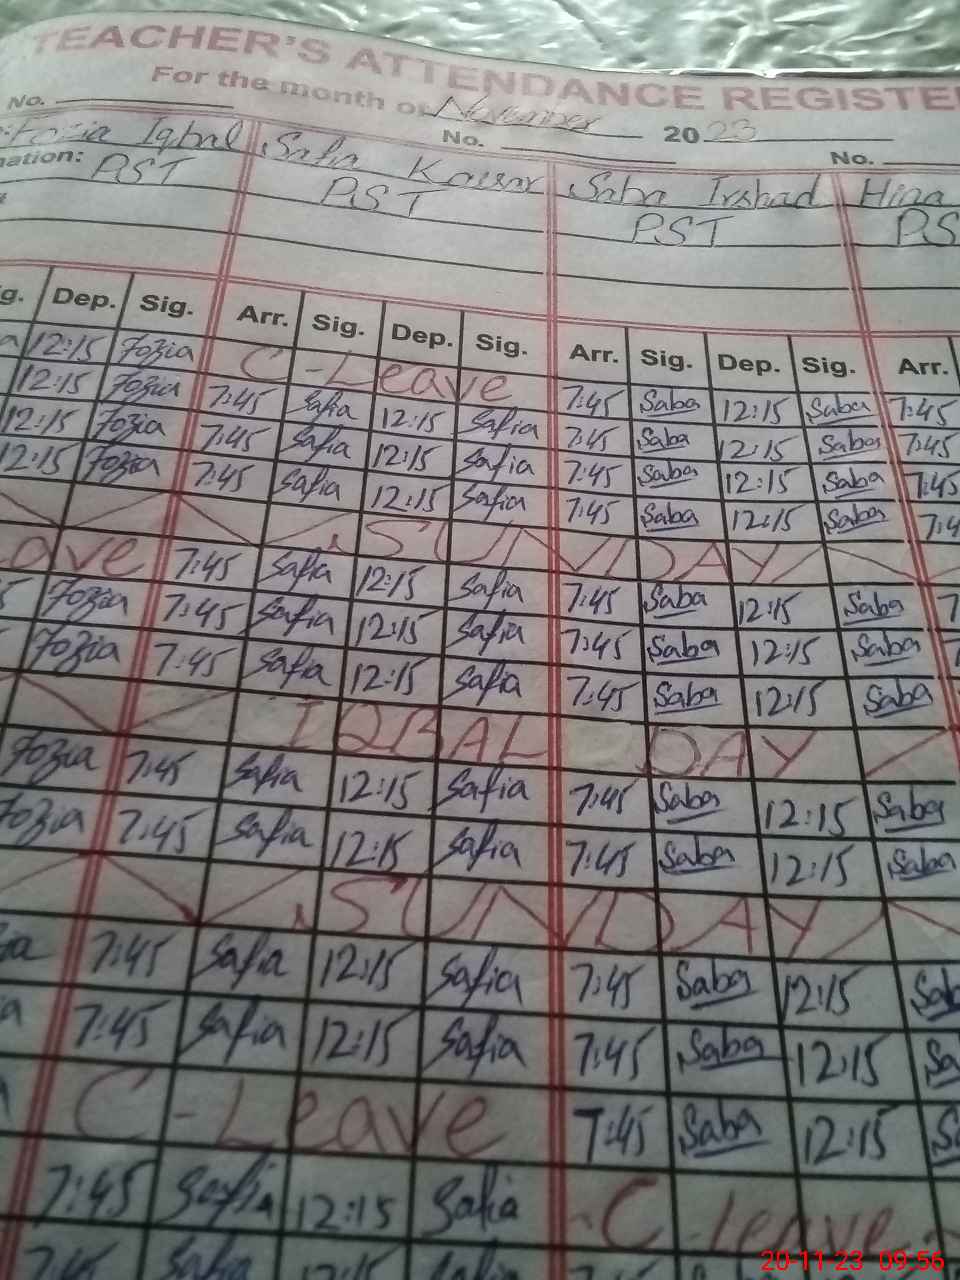 TEACHER'S ATTENDANCE REGISTE
For the month of November 2023
No. No. No.
Fozia Iqbal Safia Kousar Saba Irshad Hina
nation: PST PST PST PS
g. Dep. Sig. Arr. Sig. Dep. Sig. Arr. Sig. Dep. Sig. Arr.
a 12:15 Fozia C-Leave 7:45 Saba 12:15 Saba 7:45
12:15 Fozia 7:45 Safia 12:15 Safia 7:45 Saba 12:15 Saba 7:45
12:15 Fozia 7:45 Safia 12:15 Safia 7:45 Saba 12:15 Saba 7:45
12:15 Fozia 7:45 Safia 12:15 Safia 7:45 Saba 12:15 Saba 7:4
SUNDAY
ave 7:45 Safia 12:15 Safia 7:45 Saba 12:15 Saba 7
5 Fozia 7:45 Safia 12:15 Safia 7:45 Saba 12:15 Saba
Fozia 7:45 Safia 12:15 Safia 7:45 Saba 12:15 Saba
IQBAL DAY
Fozia 7:45 Safia 12:15 Safia 7:45 Saba 12:15 Saba
Fozia 7:45 Safia 12:15 Safia 7:45 Saba 12:15 Saba
SUNDAY
ia 7:45 Safia 12:15 Safia 7:45 Saba 12:15 Sab
a 7:45 Safia 12:15 Safia 7:45 Saba 12:15 Sa
C-Leave 7:45 Saba 12:15 S
7:45 Safia 12:15 Safia C-leave
7:45 Safia 12:15
20-11-23 09:56